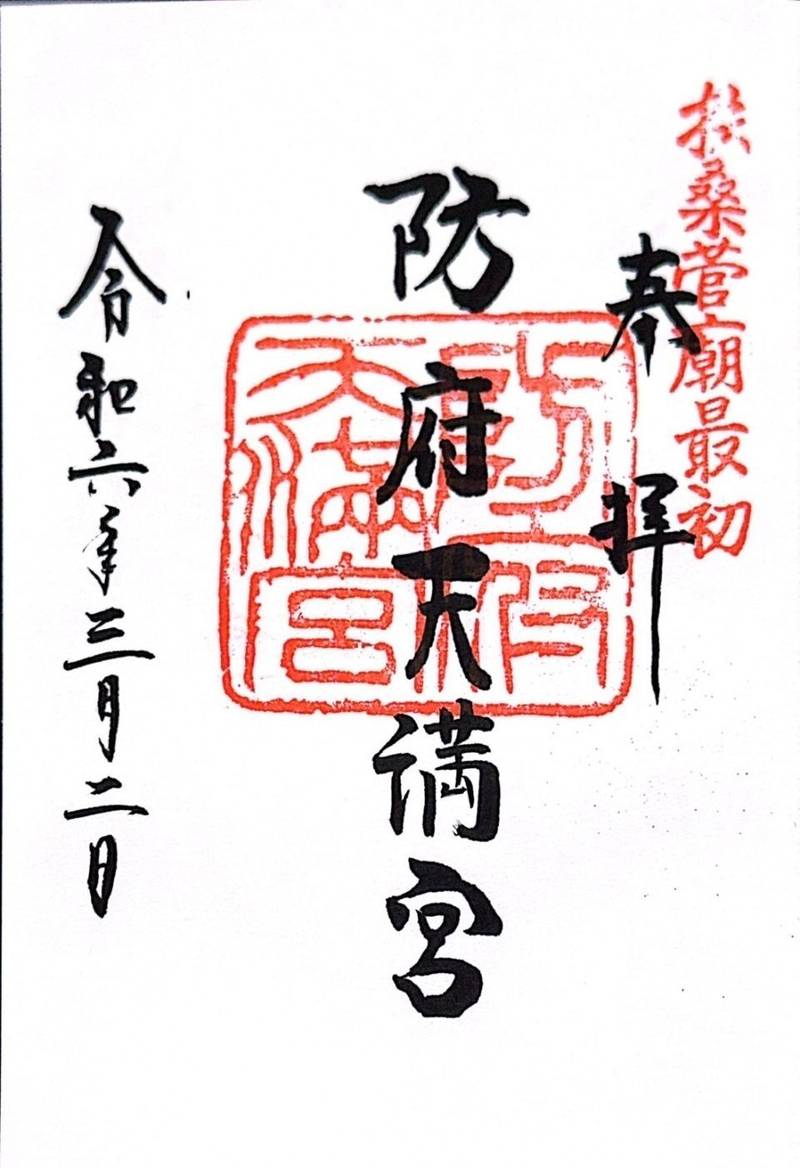 扶桑菅廟最初
奉拝
防府天満宮
防府
天満宮
令和六年三月二日